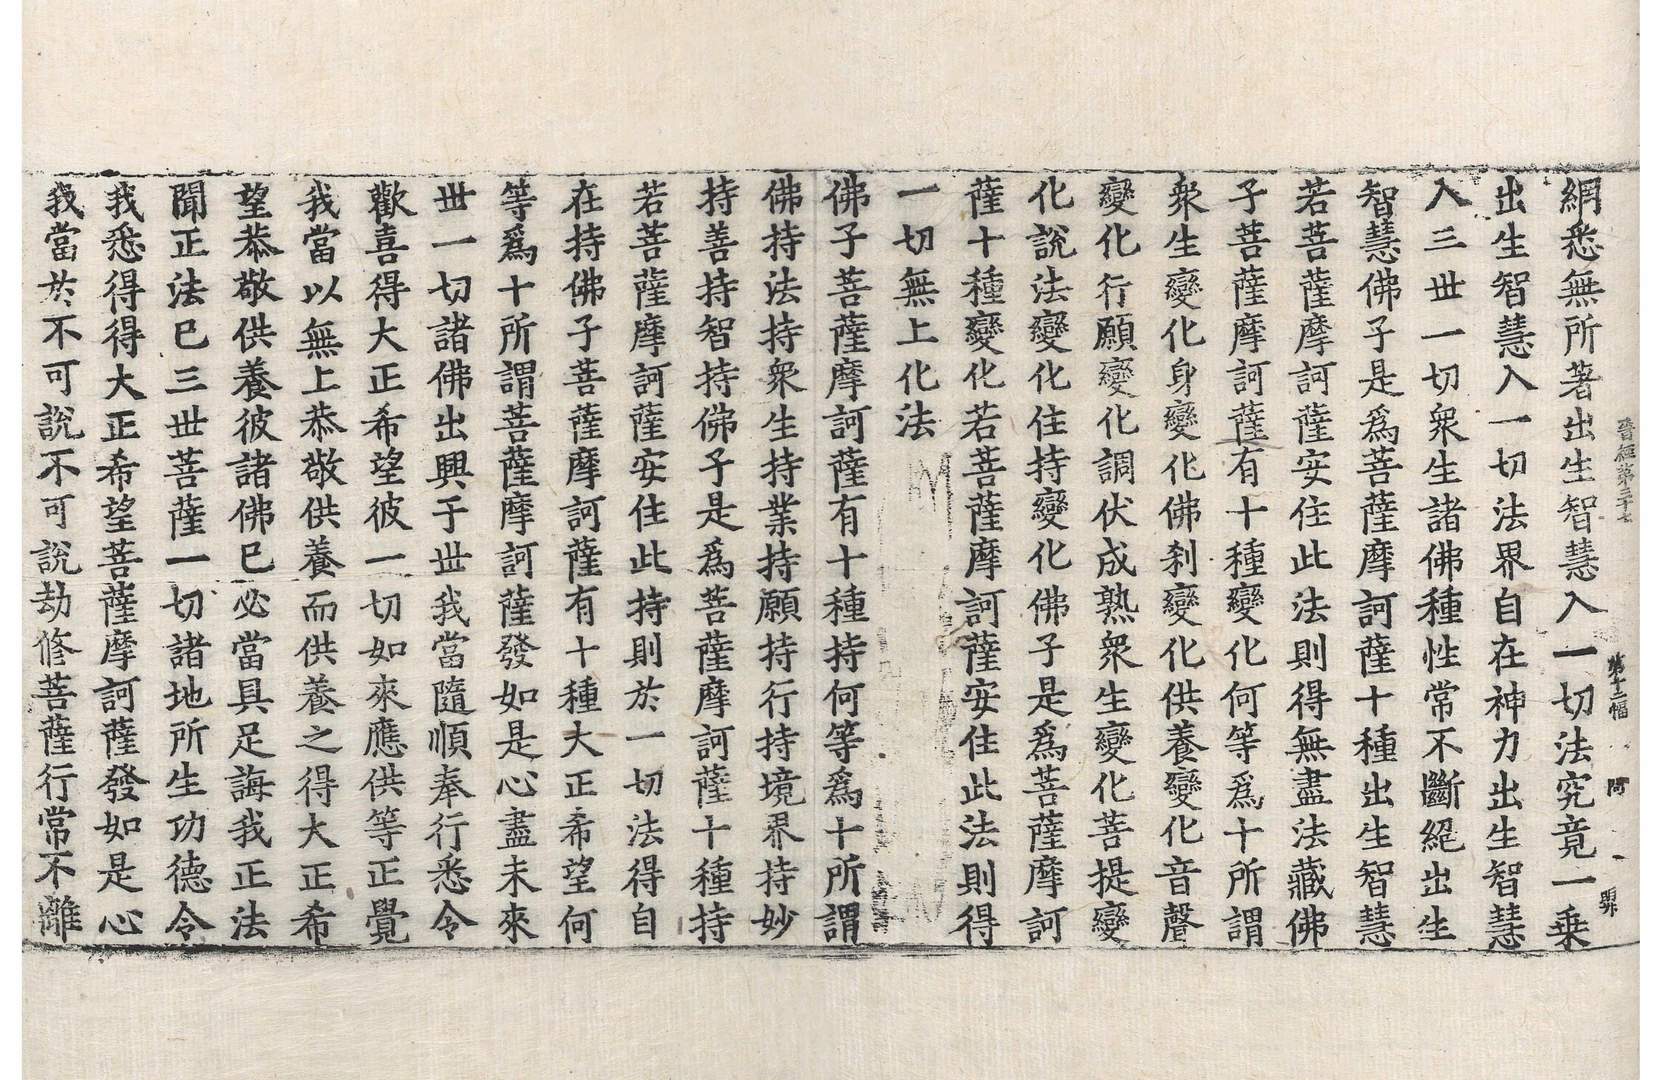 晉經第三十七
第十二幅
網悉無所著出生智慧入一切法究竟一乗
出生智慧入一切法界自在神力出生智慧
入三世一切衆生諸佛種性常不斷絕出生
智慧佛子是爲菩薩摩訶薩十種出生智慧
若菩薩摩訶薩安住此法則得無盡法藏佛
子菩薩摩訶薩有十種變化何等爲十所謂
衆生變化身變化佛刹變化供養變化音聲
變化行願變化調伏成熟衆生變化菩提變
化說法變化住持變化佛子是爲菩薩摩訶
薩十種變化若菩薩摩訶薩安住此法則得
一切無上化法
佛子菩薩摩訶薩有十種持何等爲十所謂
佛持法持衆生持業持願持行持境界持妙
持善持智持佛子是爲菩薩摩訶薩十種持
若菩薩摩訶薩安住此持則於一切法得自
在持佛子菩薩摩訶薩有十種大正希望何
等爲十所謂菩薩摩訶薩發如是心盡未來
世一切諸佛出興于世我當隨順奉行悉令
歡喜得大正希望彼一切如來應供等正覺
我當以無上恭敬供養而供養之得大正希
望恭敬供養彼諸佛已必當具足誨我正法
聞正法已三世菩薩一切諸地所生功德令
我悉得得大正希望菩薩摩訶薩發如是心
我當於不可說不可說劫修菩薩行常不離